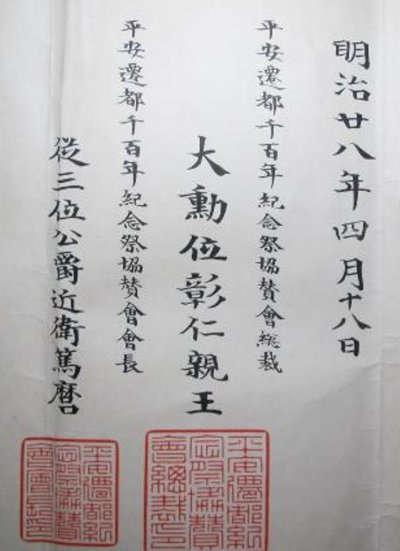 明治廿八年四月十八日
平安遷都千百年紀念祭協賛會総裁
大勲位彰仁親王
平安遷都千百年紀念祭協賛會會長
従三位公爵近衛篤麿
平安遷都紀
念祭協賛
會總裁印
平安遷都紀
念祭協賛
會會長印